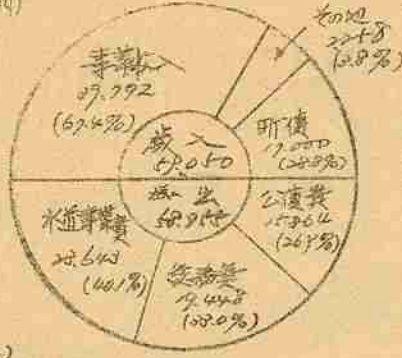 その他
2258
(3.8%)
事業収入
39.792
(67.4%)
町債
17.000
(28.8%)
歳入
59.050
歳出
58.955
公債費
15.864
(26.9%)
水道事業費
23.643
(40.1%)
総務費
19.448
(33.0%)